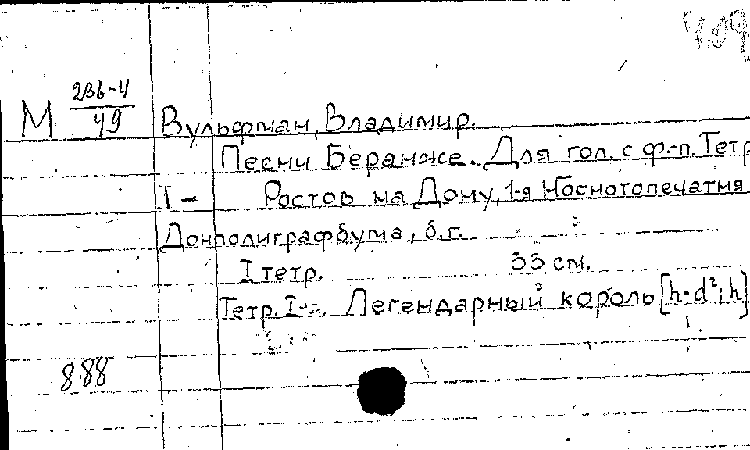 409
М 286-4/49
Вульфман, Владимир.
Песни Беранже. Для гол. с ф-п. Тетр
I- Ростов на Дону, 1-я Носнотопечатня
Донполиграфбума, б.г.
I тетр. 33 см.
Тетр. I-. Легендарный король [h-d²; h]
888